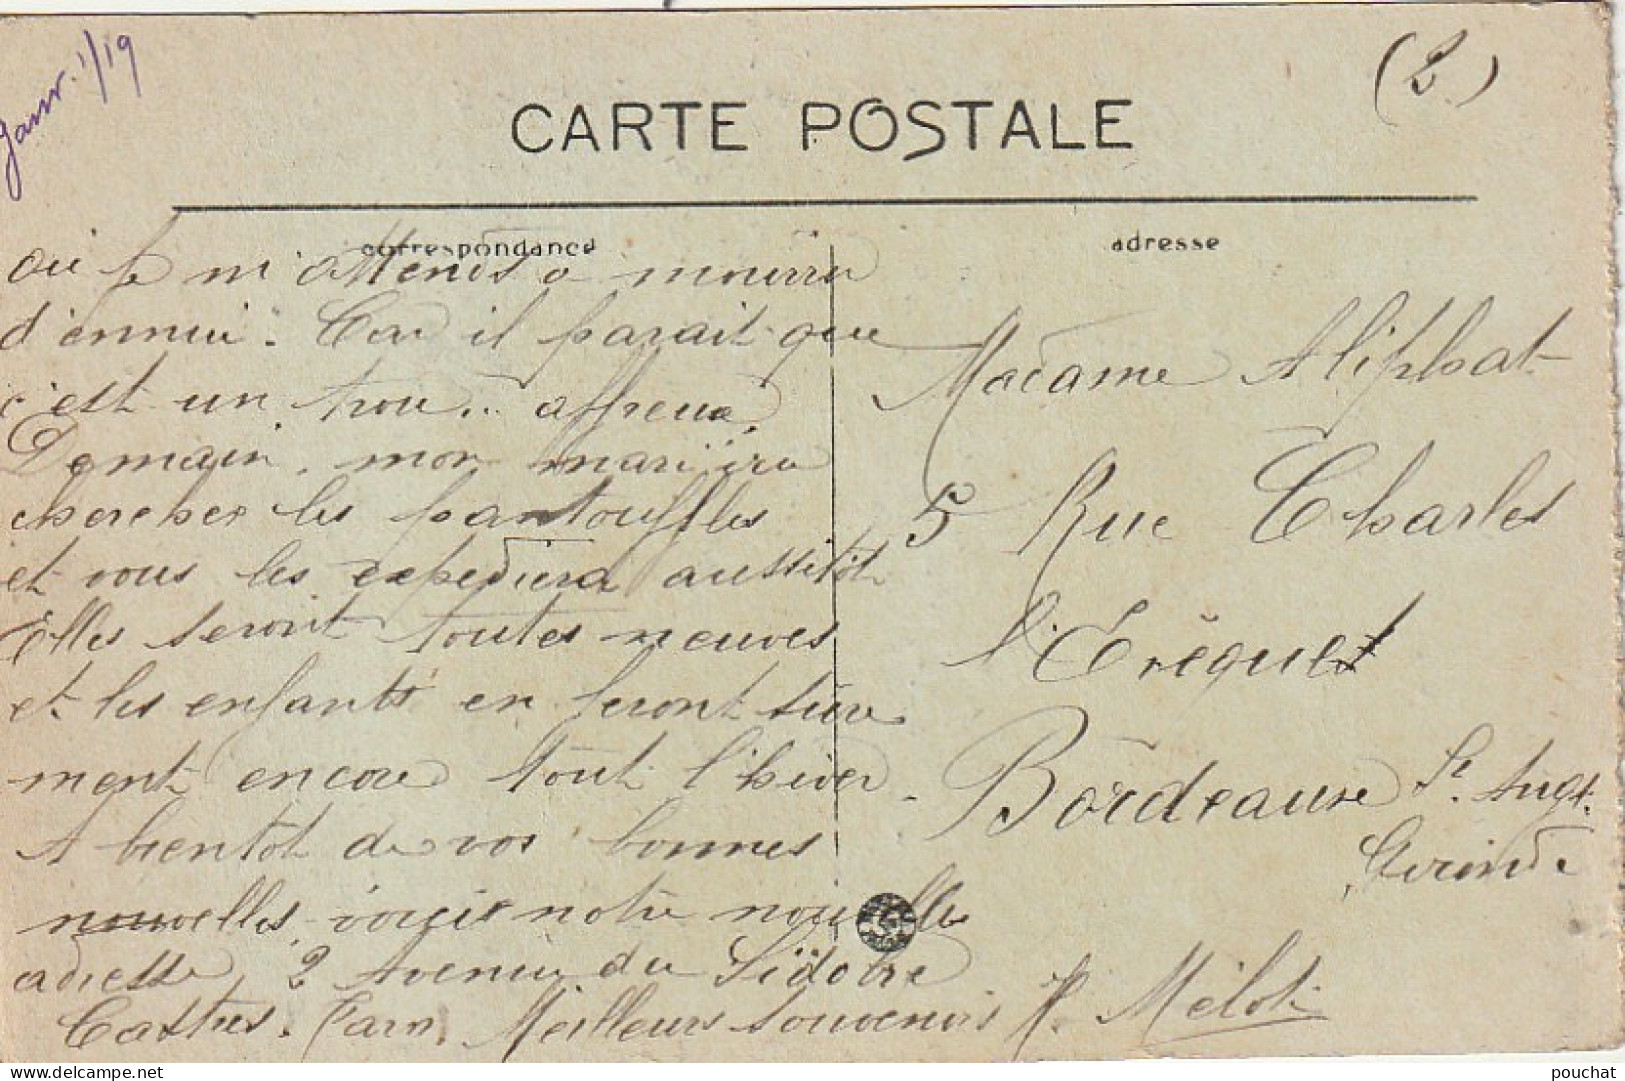 Janv. 1/19
(2)
CARTE POSTALE
correspondance
adresse
où je m'attends à mourir
d'ennui. Car il parait que
c'est un trou... affreux.
Demain, mon mari ira
chercher les pantouffles
et vous les expediera aussitôt
Elles seront toutes neuves
et les enfants en feront sûre
ment encore tout l'hiver.
A bientôt de vos bonnes
nouvelles, voici notre nouvelle
adresse, 2 Avenue du Sidobre
Castres. Tarn. Meilleurs souvenirs
Madame Aliphat
5 Rue Charles
l'Evêque
Bordeaux St. Augt.
Gironde
Mélot
pouchat